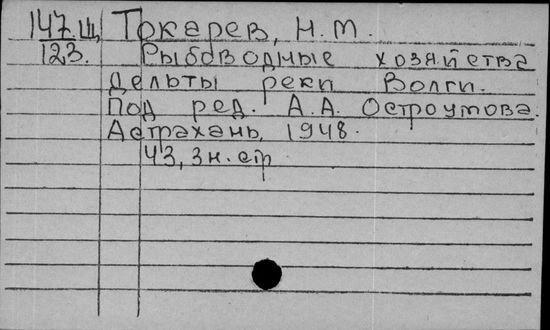 147.Щ, Токарев, Н.М.
123. Рыбоводные хозяйства
дельты реки Волги.
Под ред. А.А. Остроумова.
Астрахань, 1948.
43, 3н. стр